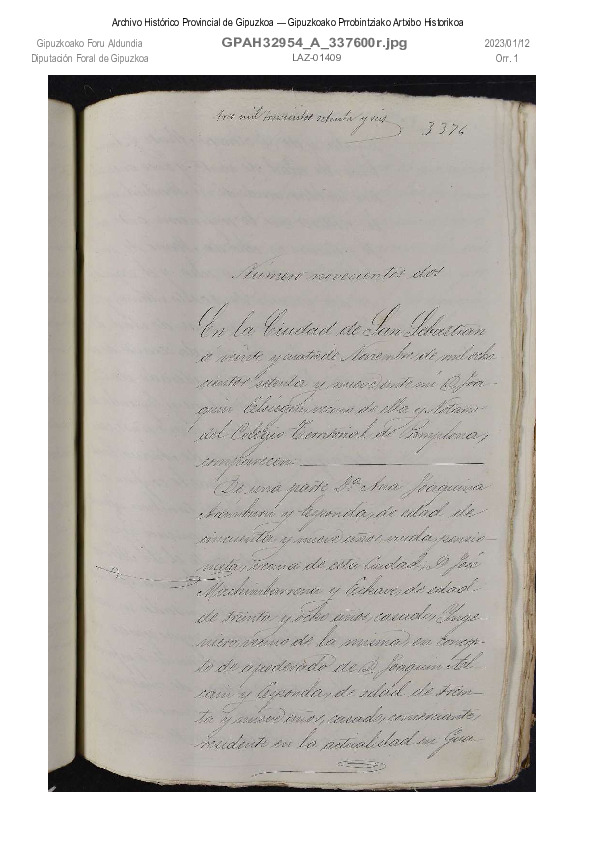 Archivo Histórico Provincial de Gipuzkoa — Gipuzkoako Prrobintziako Artxibo Historikoa
Gipuzkoako Foru Aldundia
Diputación Foral de Gipuzkoa
GPAH32954_A_337600r.jpg
LAZ-01409
2023/01/12
Orr. 1
tres mil trescientos setenta y seis
3376
Número novecientos dos
En la Ciudad de San Sebastian
a veinte y cuatro de Noviembre de mil ocho
cientos setenta y nueve ante mi D. Joa-
quin vecino de ella y Notario
del Colegio Territorial de Pamplona,
comparecen:
De una parte D.ª Ana Joaquina
Aramburu y Elgonda, de edad de
cincuenta y nueve años, viuda, pensio-
nista, vecina de esta Ciudad, D. José
Machimbarrena y Echave, de edad
de treinta y ocho años, casado, Inge
niero, vecino de la misma, en concep-
to de apoderado de D. Joaquin
y de edad de trein-
ta y nueve años, casado, comerciante,
residente en la actualidad en Gua-